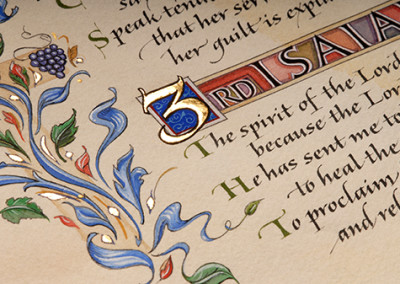 Speak tend
that her ser
her guilt is expi
3RD ISAIA
The spirit of the Lord
because the Lor
He has sent me to
to heal the
To proclaim
and rel